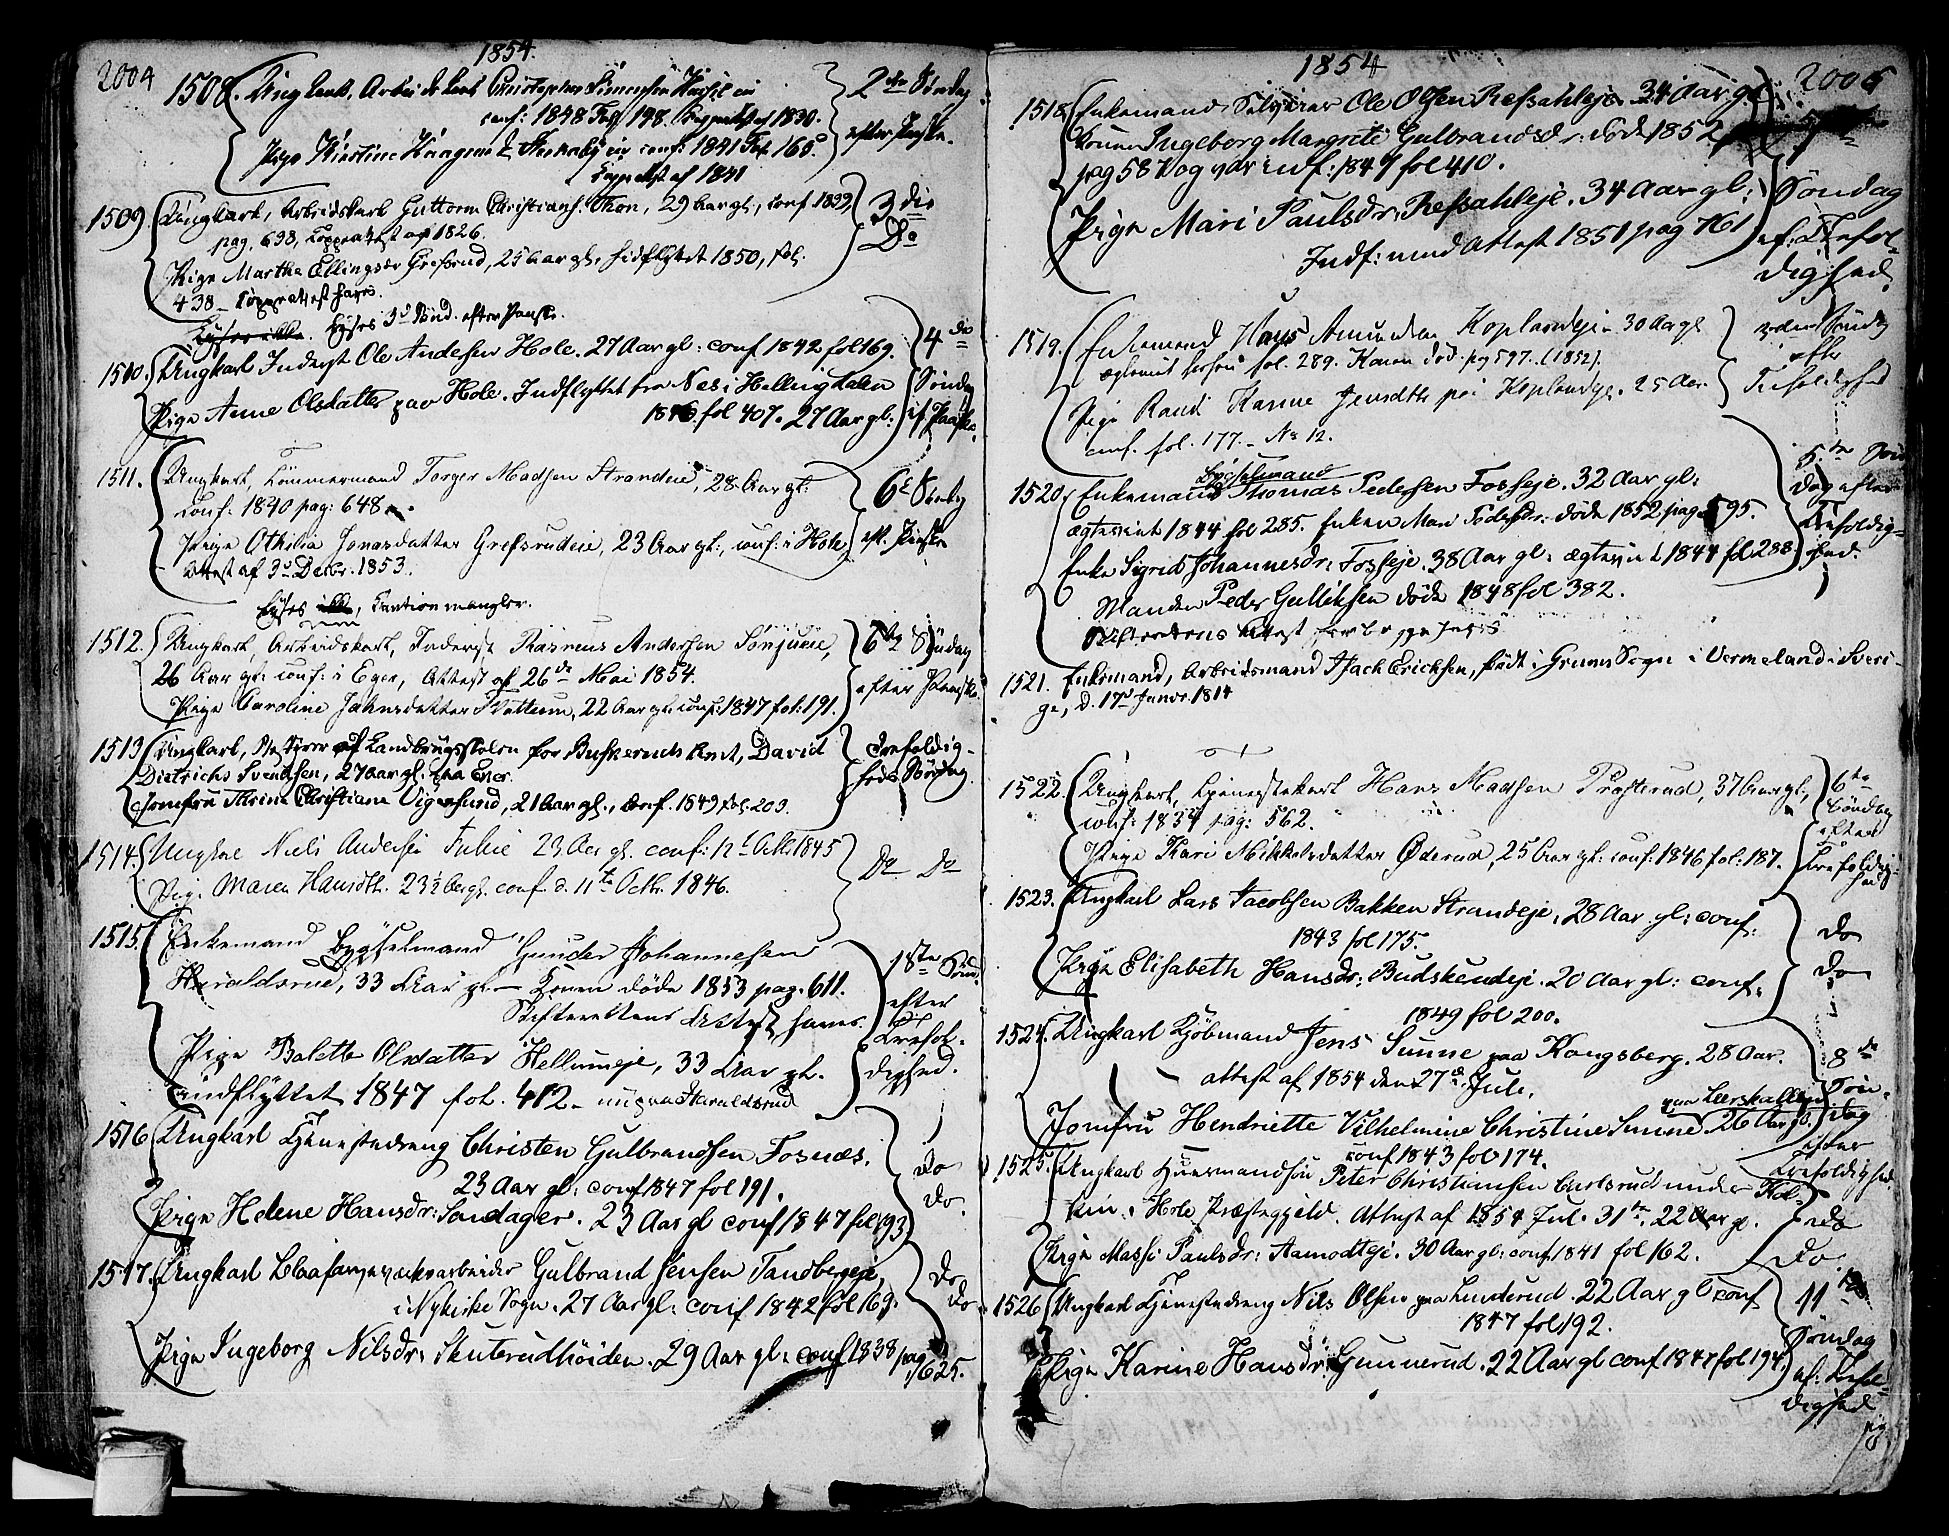 1854.
2004
1508. Ungkarl, Arbeidskarl Christopher Simensen
conf: 1848 Fol 198. Koppeattest af 1830.
Pige Kirstine conf: 1841 Fol 165.
Koppeattest af 1841
2den Søndag
efter Paaske.
1509 Ungkarl, Arbeidskarl Guttorm Christians. Moen, 29 Aar gl., conf. 1839,
pag. 698, Koppeattest af 1826.
Pige Marthe Ellingsdr Grefsrud, 25 Aar gl., hidflyttet 1850, fol.
438 – Koppeattest haves.
3die
Do
Lyses 3d Sønd. efter Paaske.
1510. Ungkarl Inderst Ole Andersen Hole. 27 Aar gl: conf 1842 fol 169.
Pige Anne Olsdatter paa Hole. Indflyttet fra Næs i Hallingdalen
1846 fol 407. 27 Aar gl:
4die
Søndag
ef Paaske.
1511. Ungkarl, Tømmermand Torger Madsen Strandeie, 28 Aar gl:
Conf: 1840 pag: 648
Pige Othilia Jonasdatter Grefsrudeie, 23 Aar gl:, conf: i Hole
Attest af 3d Decbr. 1853.
6te Søndag
eft. Paaske
Lyses ikke, Caution mangler.
1512. Ungkarl, Arbeidskarl, Inderst Rasmus Andersen
26 Aar gl: conf: i Eger, Attest af 26de Mai 1854.
Pige Caroline Jahnsdatter 22 Aar gl: conf: 1847 fol: 191.
6te Søndag
efter Paaske.
1513 Ungkarl, Bestyrer af Landbrugsskolen for Buskeruds Amt, David
Dietrichs Svendsen, 27 Aar gl. paa Eger.
Jomfru Thrine Christiane Vigersund, 21 Aar gl., conf. 1849 fol. 203.
Trefoldig-
heds Søndag.
1514. Ungkarl Niels Andersen 23 Aar gl. conf: 12t Octbr 1845
Pige Maren Hansdtr. 23½ Aar gl. conf. d. 11te Octbr. 1846.
Do Do
1515. Enkemand Bygselmand Gunder Johannesen
Haraldsrud, 33 Aar gl – Konen døde 1853 pag. 611.
Skifterettens Attest haves.
Pige Balette Olsdatter Hellumeje, 33 Aar gl.
indflyttet 1847 fol. 412 – nu paa Haraldsrud
1ste Sønd.
efter
Trefol-
dighed.
1516 Ungkarl Tjenestedreng Christen Gulbrandsen Fosnæs.
23 Aar gl: conf 1847 fol 191.
Pige Helene Hansdr: Sondager. 23 Aar gl conf 1847 fol 193
do
do.
1517. Ungkarl Blaafarveværksarbeider Gulbrand Jensen Tandbergeje,
i Nykirke Sogn. 27 Aar gl: conf 1842 fol 169.
Pige Ingeborg Nilsdr: Skuterudhöiden. 29 Aar gl: conf 1838 pag 625.
Do
Do
1854
2005
1518. Enkemand Selveier Ole Olsen Refsahleje. 34 Aar gl
Konen Ingeborg Margrete Gulbrandsdr: døde 1852
pag 58 og var indf: 1847 fol 410.
Pige Mari Paulsdr: Refsahleje. 34 Aar gl:
Indf: med attest 1851 pag 761
Søndag
ef: Trefol-
dighed.
1519. Enkemand Hans Amundsen Koplandeje 30 Aar gl
ægteviet fol. 289. Konen død. pag 597. (1852).
Pige Randi Karine Jensdtr paa Koplandeje. 25 Aar.
conf. fol. 177. No 12.
Søndag
efter
Trefoldighed
Bygselmand
1520. Enkemand Thomas Pedersen Fosseje. 32 Aar gl:
ægteviet 1844 fol 285. Konen Mari Pedersdr: døde 1852 pag 595.
Enke Sigrid Johannesdr: Fosseje. 38 Aar gl: ægteviet 1844 fol 288.
Manden Peder Gulliksen døde 1848 fol 382.
Skifterettens Attest for begge haves
5te Søn
dag efter
Trefoldig-
hed.
1521. Enkemand, Arbeidsmand Isach Ericksen, født i Grums Sogn i Vermeland i Sveri-
ge, d. 17d Januar. 1814
1522. Ungkarl, Tjenestekarl Hans Madsen Prosterud, 37 Aar gl,
conf: 1834 pag: 562.
Pige Kari Mikkelsdatter Øderud, 25 Aar gl: conf: 1846 fol: 187.
6te
Søndag
efter
Trefoldig-
hed
1523. Ungkarl Lars Jacobsen Bakken Strandeje, 28 Aar gl: conf:
1843 fol 175.
Pige Elisabeth Hansdr: Budskendeje. 20 Aar gl: conf.
1849 fol 200.
do
do
1524. Ungkarl Kjøbmand Jens Sunne paa Kongsberg. 28 Aar.
attest af 1854 den 27d Juli.
Jomfru Henriette Vilhelmine Christine Sunne 26 Aar gl.
conf 1843 fol 174.
8de
Søn-
dag
efter
Trefoldighed
1525. Ungkarl Huusmandssøn Peter Christiansen under
i Hole Præstegjeld. Attest af 1854 Jul. 31te. 22 Aar gl.
Pige Massi Paulsdr: Aamodteje. 30 Aar gl: conf 1841 fol 162.
do
do.
1526 Ungkarl Tjenestedreng Nils Olsen paa Lunderud. 22 Aar gl conf
1847 fol 192.
Pige Karine Hansdr: Gunnerud. 22 Aar gl conf 1847 fol 194.
11te
Søndag
ef: Trefol-
dighed